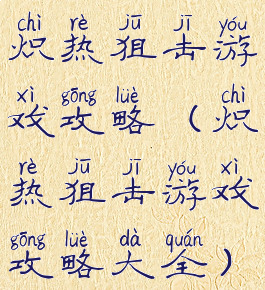 chì rè jū jī yóu
炽热狙击游
xì gōng lüè chì
戏攻略（炽
rè jū jī yóu xì
热狙击游戏
gōng lüè dà quán
攻略大全）